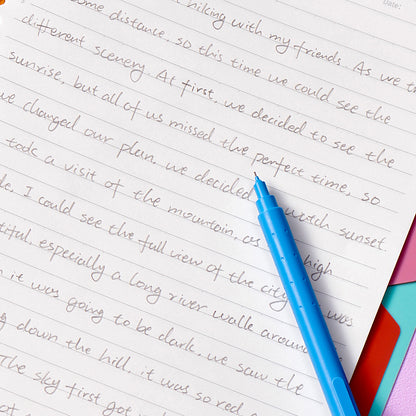 Date:
hiking with my friends. As we tr
some distance, so this time we could see the
different scenery. At first, we decided to see the
sunrise, but all of us missed the perfect time, so
we changed our plan, we decided watch sunset.
took a visit of the mountain, as high
I could see the full view of the city was
tiful, especially a long river walk around
it was going to be dark, we saw the
g down the hill, it was so red
The sky first got